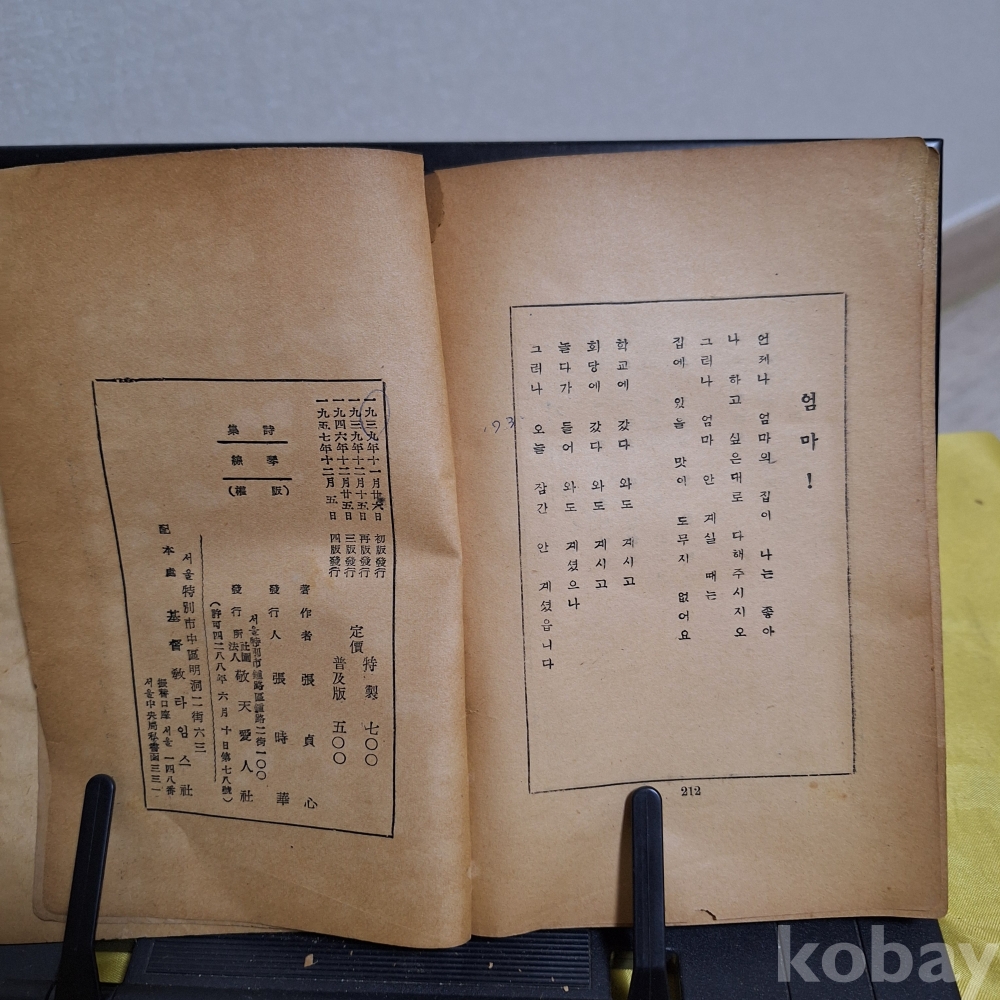 엄마!
언제나 엄마의 집이 나는 좋아
나 하고 싶은대로 다해주시지오
그러나 엄마 안 계실 때는
집에 있을 맛이 도무지 없어요
학교에 갔다 와도 계시고
회당에 갔다 와도 계시고
놀다가 들어 와도 계셨으나
그러나 오늘 잠간 안 계셨읍니다
212
193
一九三九年十一月廿六日 初版發行
一九三九年十二月十五日 再版發行
一九四六年十二月廿五日 三版發行
一九五七年十二月 五日 四版發行
定價
特製 七〇〇
普及版 五〇〇
著作者 張貞心
發行人 張時華
서울特別市鍾路區鍾路二街一〇〇
發行所 社團法人 敬天愛人社
(許可四二八八年六月十日第七八號)
서울特別市中區明洞二街六三
配本處 基督敎타임스社
振替口座 서울 一四八番
서울中央局私書函三三一
詩集
琴線
(版權)
kobay